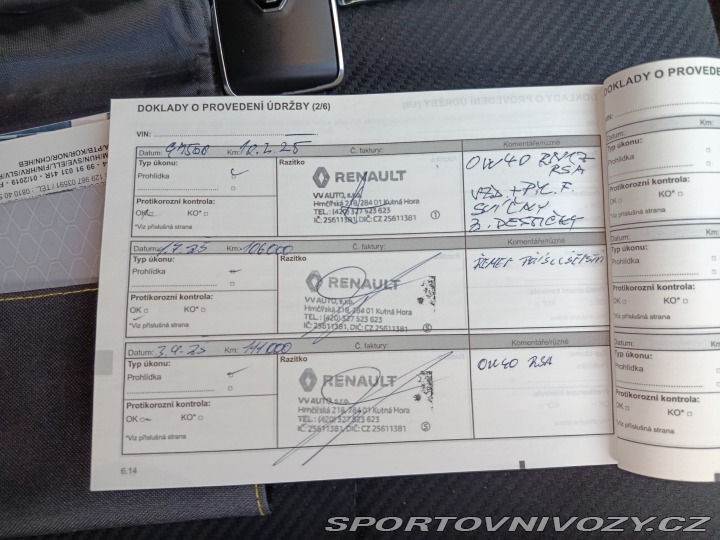 DOKLADY O PROVEDENÍ ÚDRŽBY (2/6)
VIN:
Datum: 97500 Km: 10.2.25 Č. faktury: Komentáře/různé
Typ úkonu: Razítko
Prohlídka
RENAULT
VV AUTO, s.r.o.
Hrnčířská 218, 284 01 Kutná Hora
TEL.: (420) 327 523 623
IČ: 25611381, DIČ: CZ 25611381
1
Protikorozní kontrola:
OK KO*
*Viz příslušná strana
0W40
RSA
SVÍČKY
Datum: 25 Km: 106000 Č. faktury: Komentáře/různé
Typ úkonu: Razítko
Prohlídka
RENAULT
VV AUTO, s.r.o.
Hrnčířská 218, 284 01 Kutná Hora
TEL.: (420) 327 523 623
IČ: 25611381, DIČ: CZ 25611381
Protikorozní kontrola:
OK KO*
*Viz příslušná strana
Datum: 3.9.25 Km: 111000 Č. faktury: Komentáře/různé
Typ úkonu: Razítko
Prohlídka
RENAULT
VV AUTO, s.r.o.
Hrnčířská 218, 284 01 Kutná Hora
TEL.: (420) 327 523 623
IČ: 25611381, DIČ: CZ 25611381
5
Protikorozní kontrola:
OK KO*
*Viz příslušná strana
0W40 RSA
6.14
DOKLADY O PROVEDE
VIN:
Datum:
Typ úkonu:
Prohlídka
Protikorozní kontrola:
OK KO*
*Viz příslušná strana
Datum:
Typ úkonu:
Prohlídka
Protikorozní kontrola:
OK KO*
*Viz příslušná strana
Datum:
Typ úkonu:
Prohlídka
Protikorozní kontrola:
OK KO*
*Viz příslušná strana
SPORTOVNIVOZY.CZ